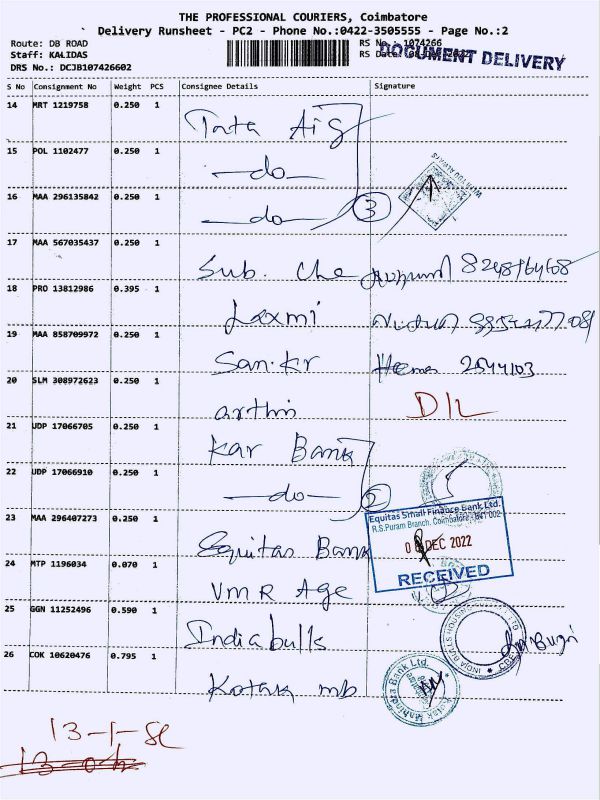 THE PROFESSIONAL COURIERS, Coimbatore
Delivery Runsheet - PC2 - Phone No.:0422-3505555 - Page No.:2
Route: DB ROAD
RS No.: 1074266
Staff: KALIDAS
RS Date:
DOCUMENT DELIVERY
DRS No.: DCJB107426602
S No Consignment No Weight PCS Consignee Details Signature
14 MRT 1219758 0.250 1 Tata Aig
15 POL 1102477 0.250 1 —do—
16 MAA 296135842 0.250 1 —do— 3
17 MAA 567035437 0.250 1 Sub. Che
18 PRO 13812986 0.395 1 Laxmi
19 MAA 858709972 0.250 1 San.kr Hema 2544103
20 SLM 308972623 0.250 1 arthi D/L
21 UDP 17066705 0.250 1 Kar Bank
22 UDP 17066910 0.250 1 —do— 2
23 MAA 296407273 0.250 1 Equitas Bank
Equitas Small Finance Bank Ltd.
R.S.Puram Branch, Coimbatore - 641 002
DEC 2022
RECEIVED
24 MTP 1196034 0.070 1 VMR Age
25 GGN 11252496 0.590 1 Indiabulls
26 COK 10620476 0.795 1 Kotak mb
Kotak Mahindra Bank Ltd.
13-1-SL